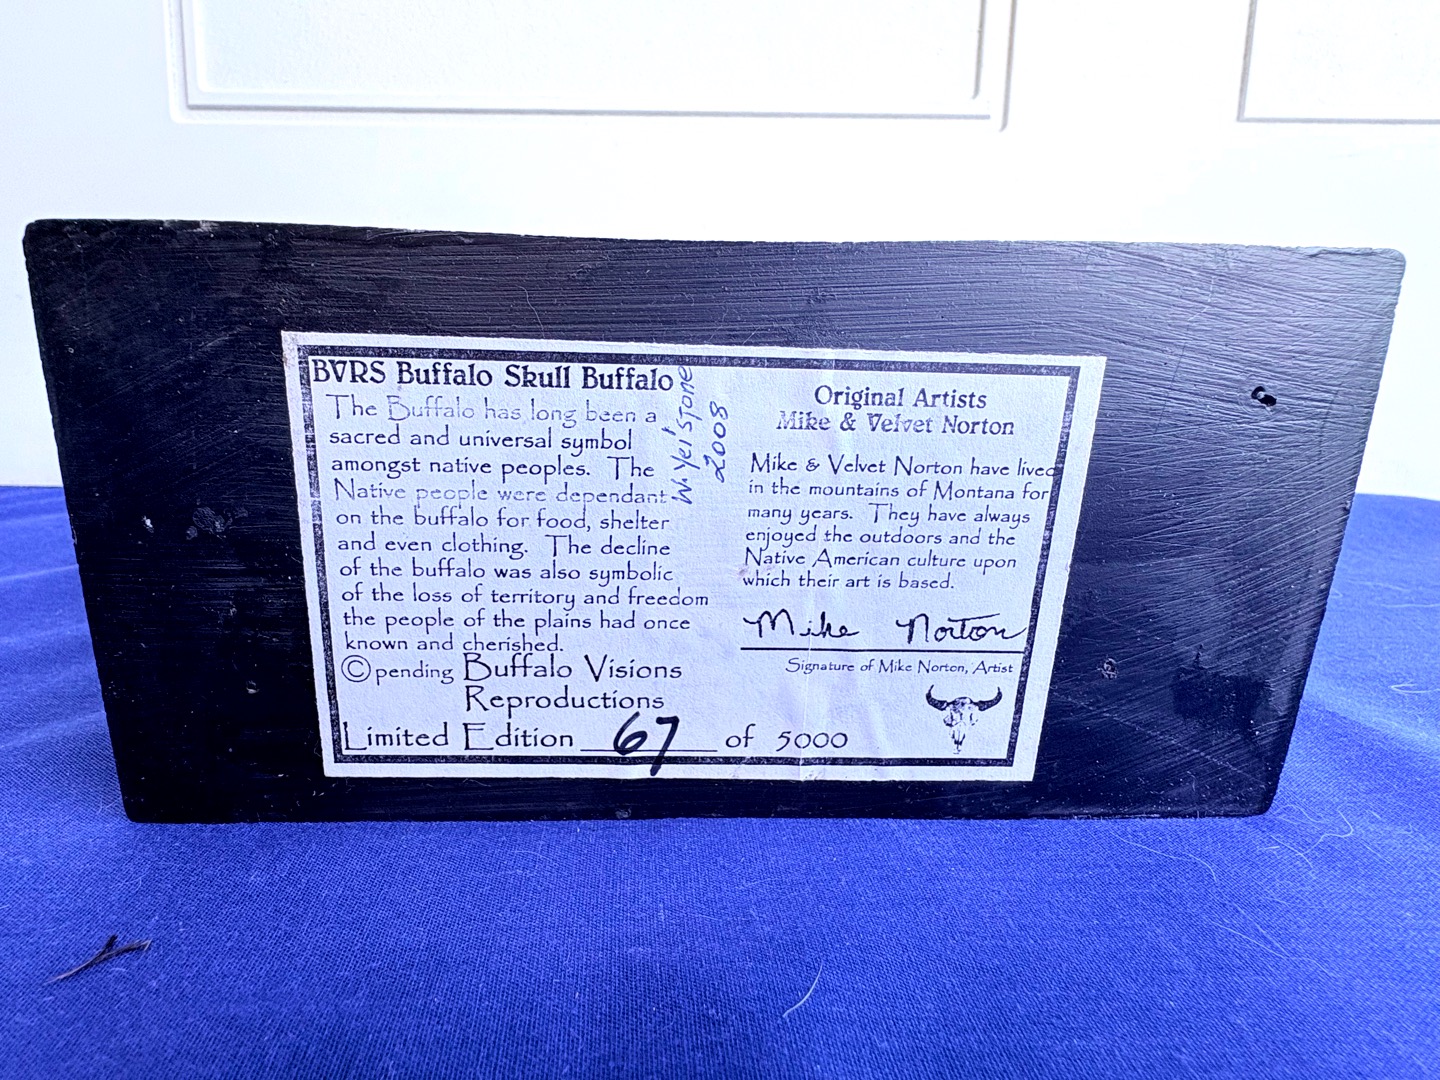 BVRS Buffalo Skull Buffalo
The Buffalo has long been a
sacred and universal symbol
amongst native peoples. The
Native people were dependant
on the buffalo for food, shelter
and even clothing. The decline
of the buffalo was also symbolic
of the loss of territory and freedom
the people of the plains had once
known and cherished.
© pending Buffalo Visions
Reproductions
Limited Edition 67 of 5000
W. Yel'stone
2008
Original Artists
Mike & Velvet Norton
Mike & Velvet Norton have lived
in the mountains of Montana for
many years. They have always
enjoyed the outdoors and the
Native American culture upon
which their art is based.
Mike Norton
Signature of Mike Norton, Artist